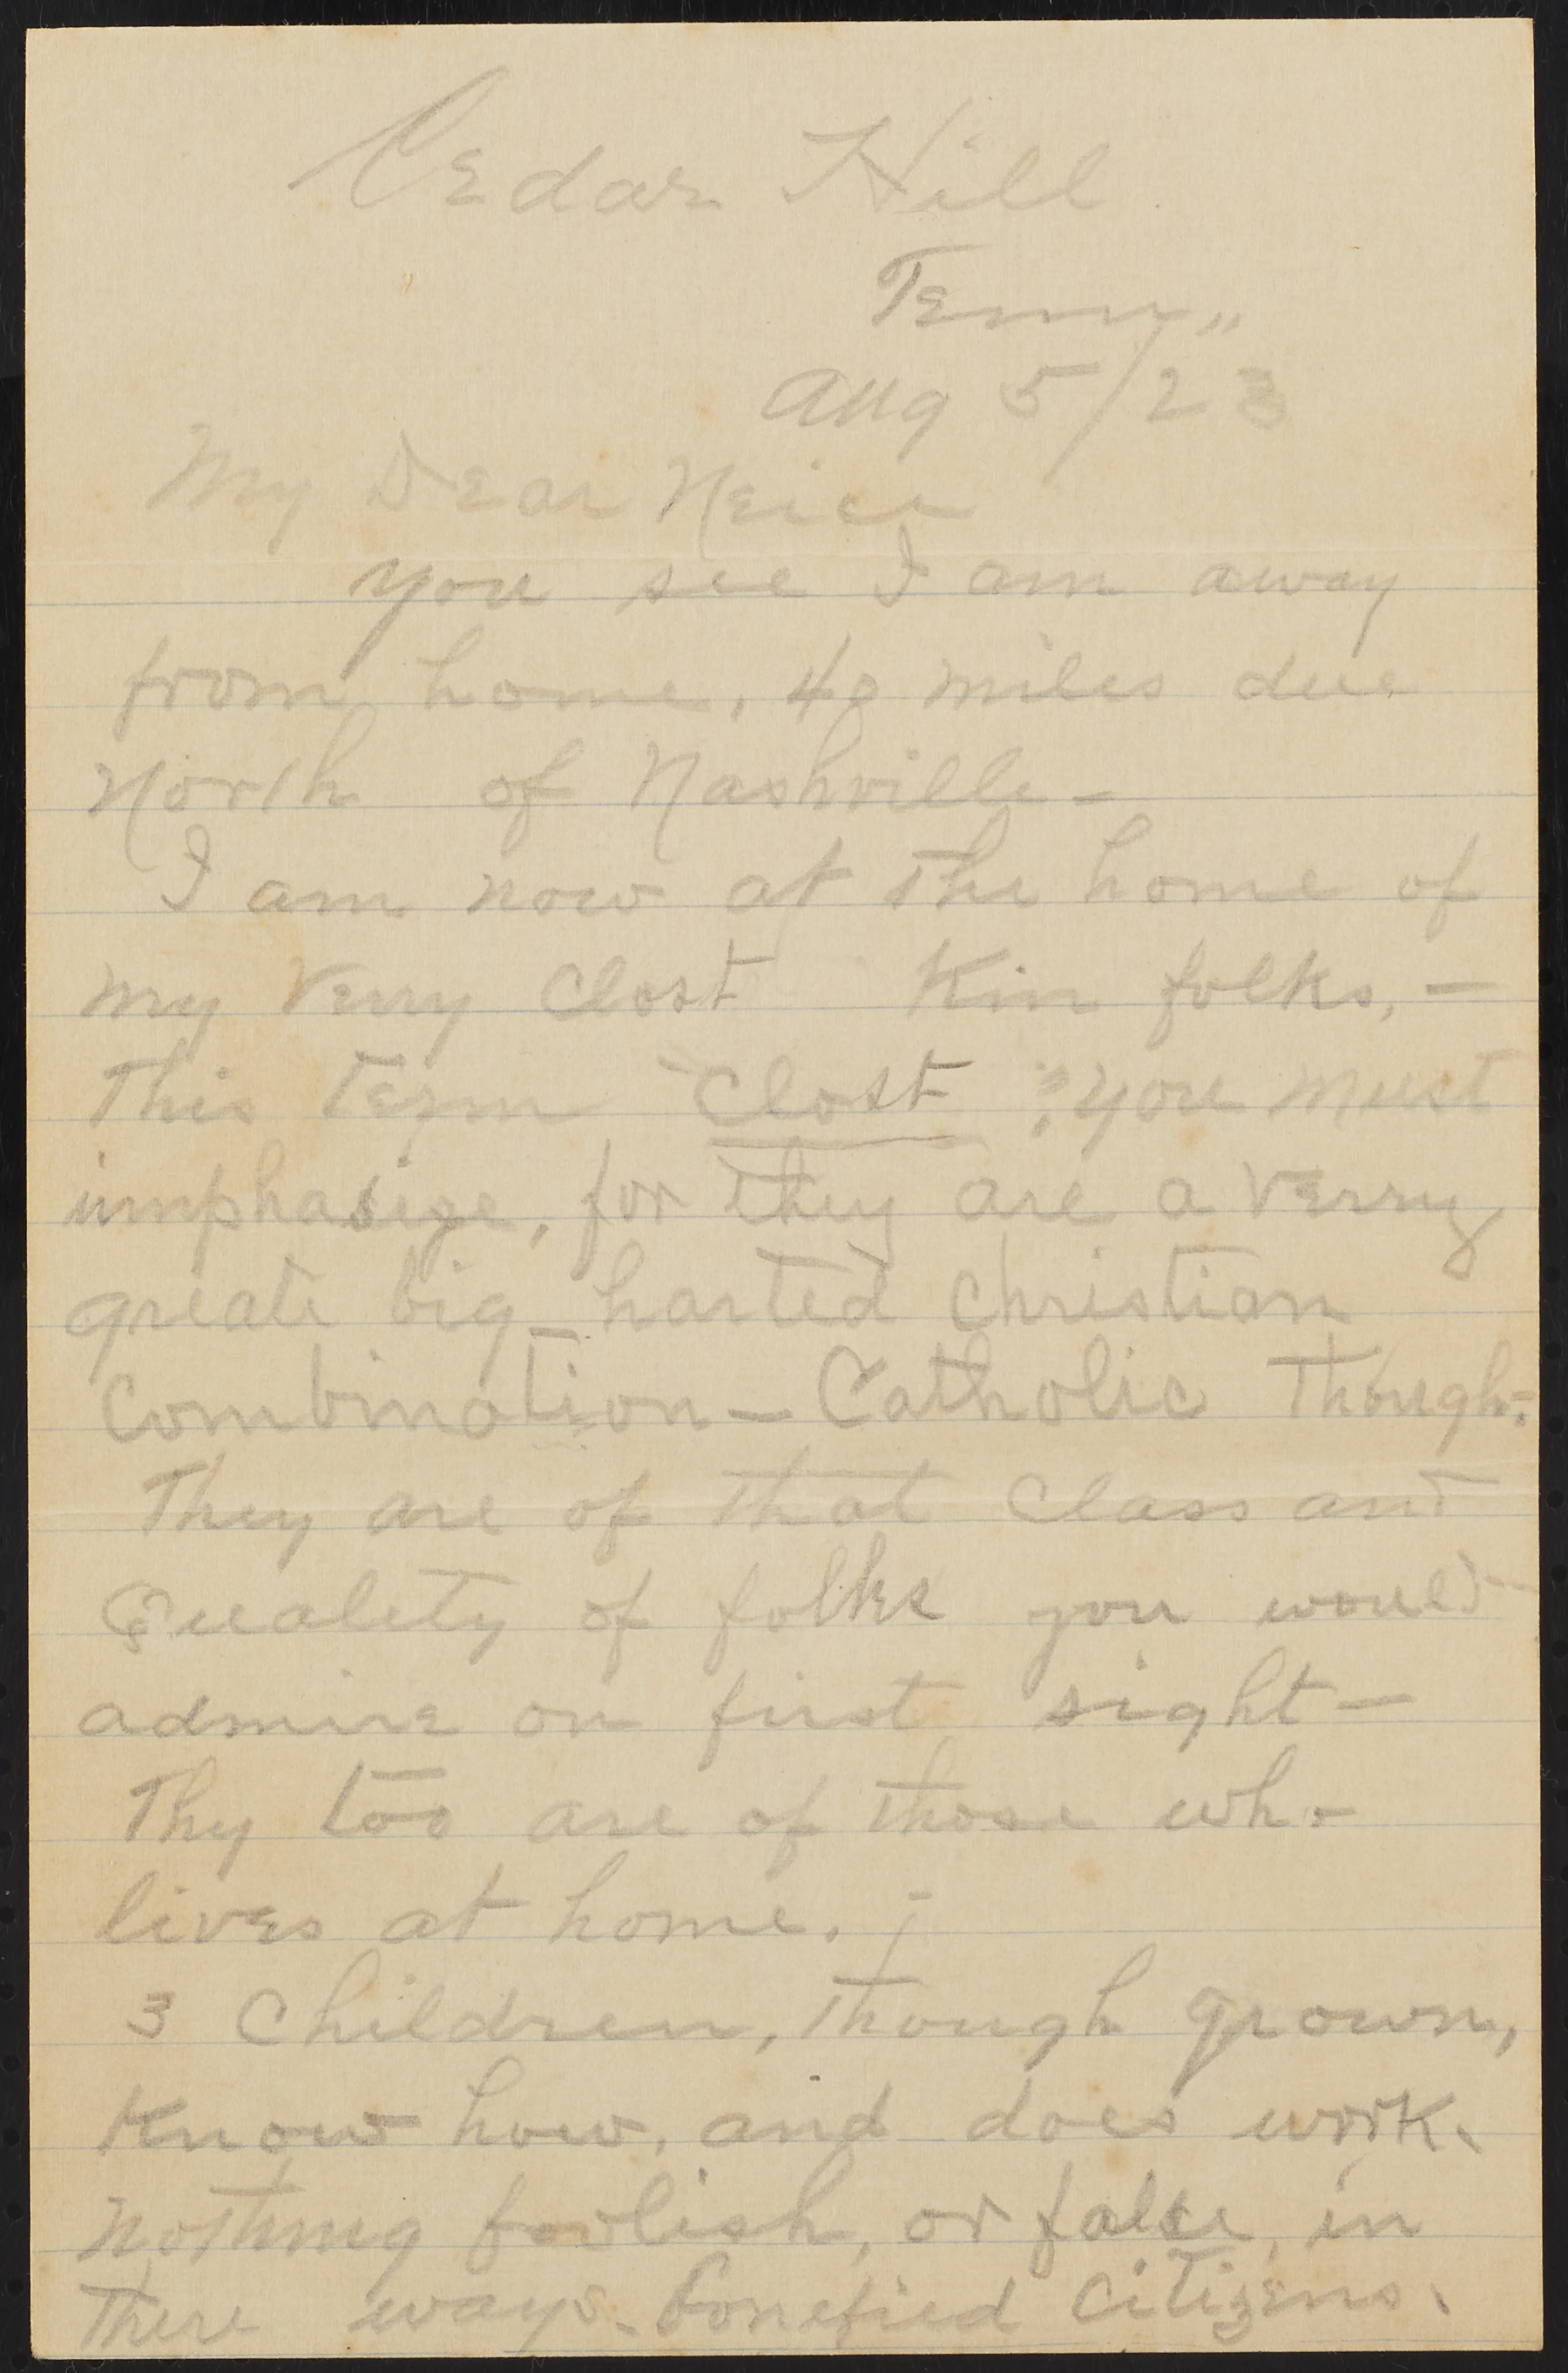 Cedar Hill.
Tenn,,
Aug 5/23
My Dear Neice
you see I am away
from home, 40 miles due
North of Nashville -
I am now at the home of
my Verry Clost Kin folks, -
This Term "Clost": you must
imphasize, for they are a Verry
greate big-harted Christian
Combination - Catholic Though:
They are of that Class and
Quality of folks you would
admire on first sight -
Thy too are of those who
lives at home. ;
3 Children, though grown,
Know how, and does work.
Nothing foolish, or false, in
There ways. bonefied Citizens.